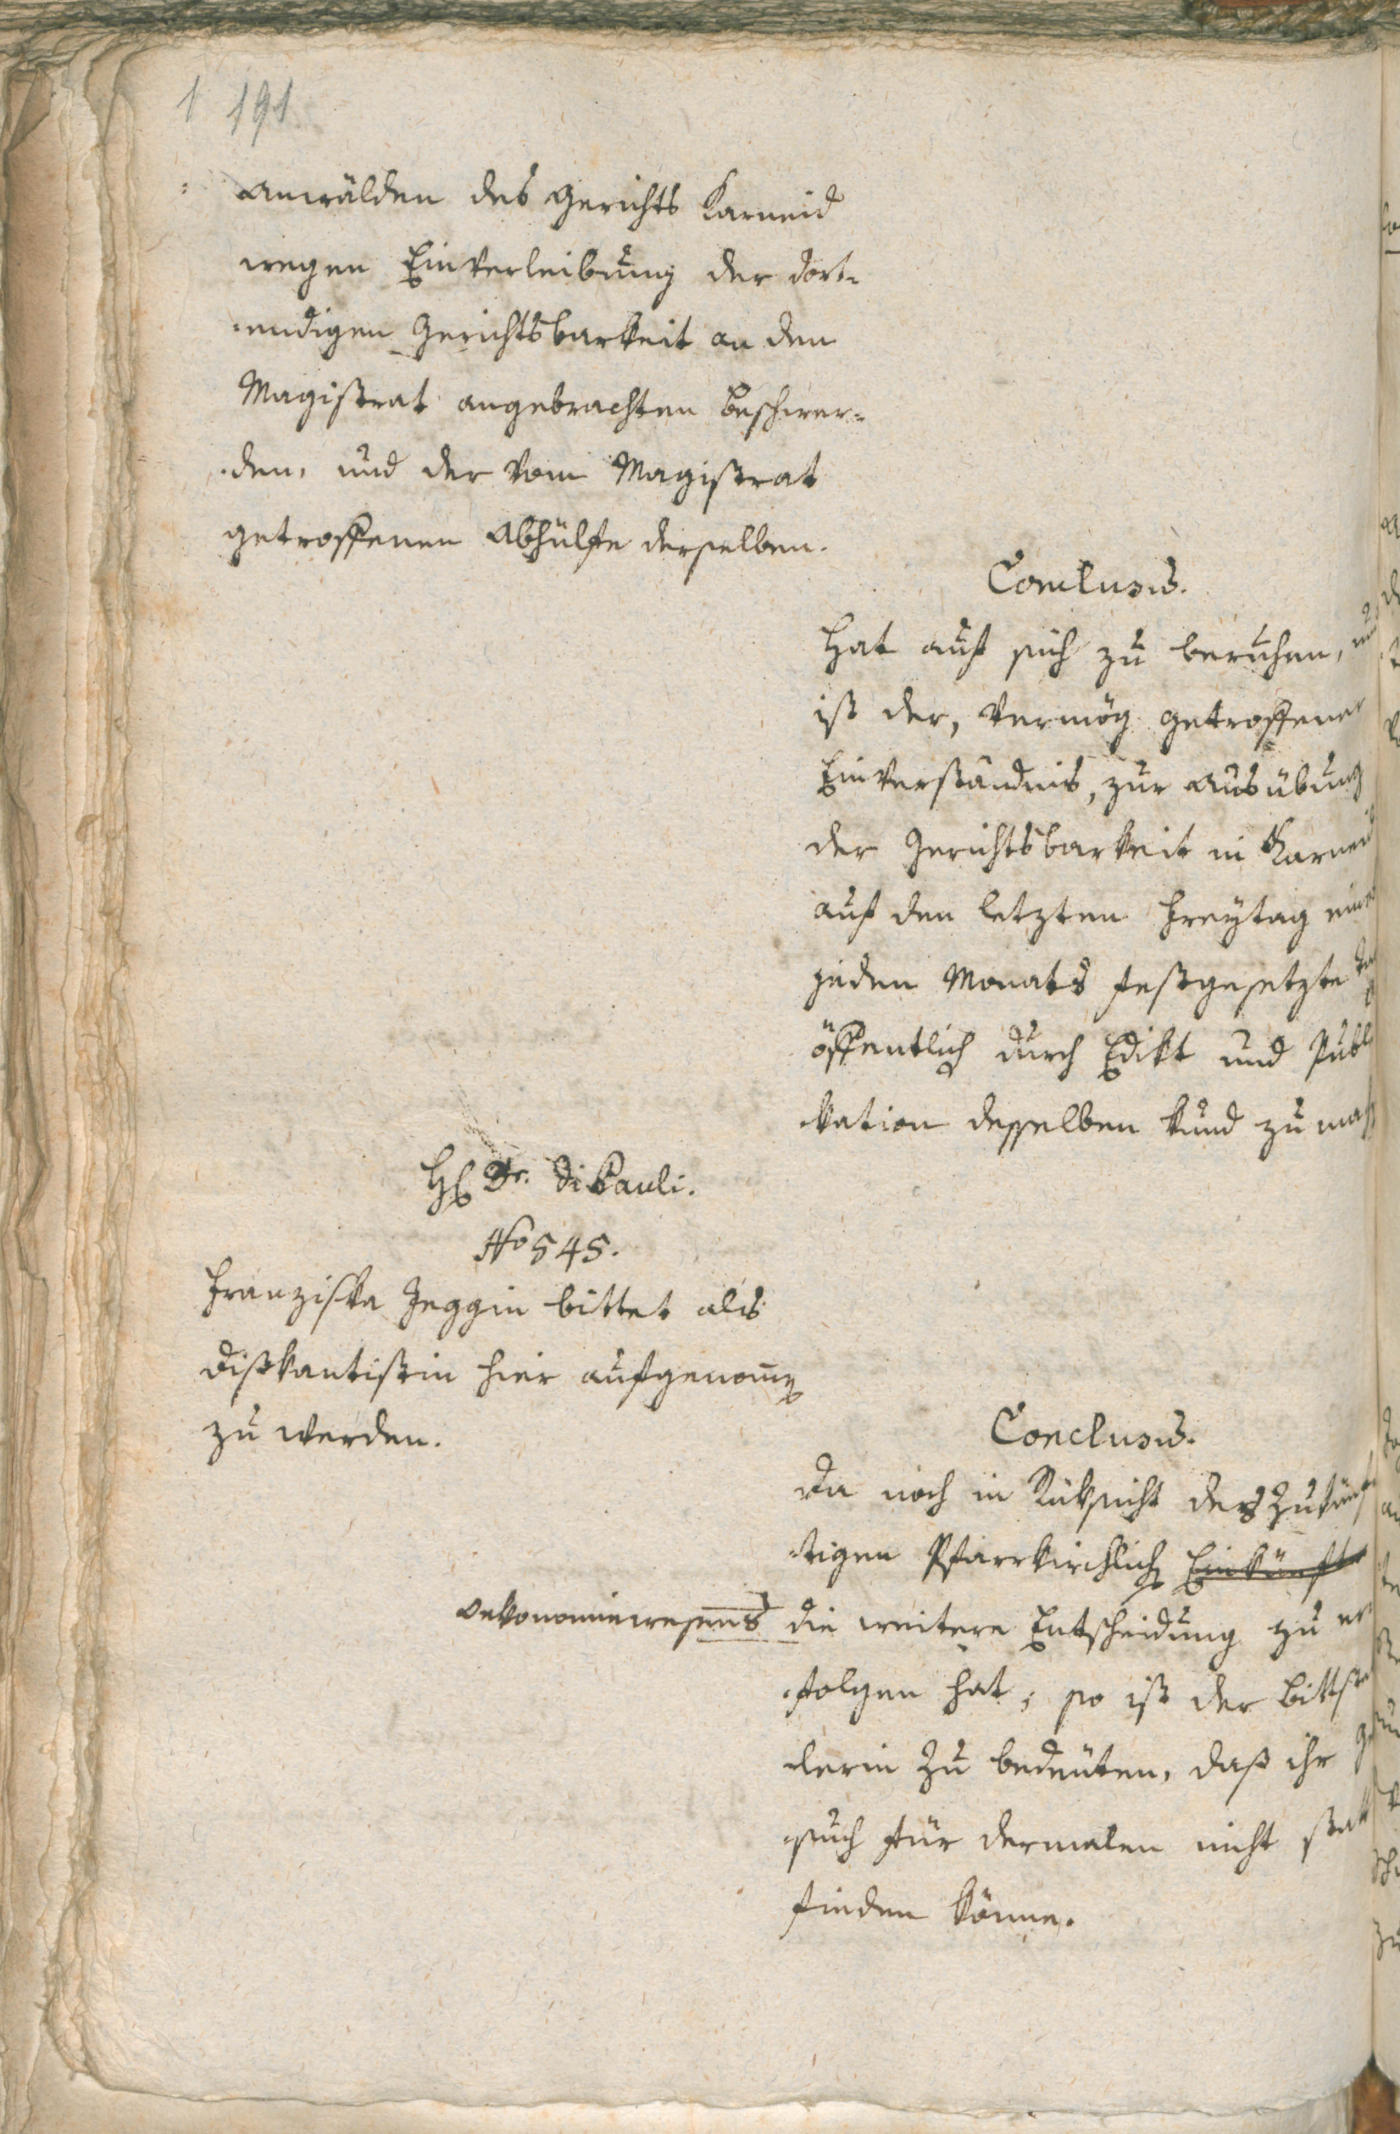 1 191
Anwälden des Gerichts Karneid
wegen Einverleibung der dort-
endigen Gerichtsbarkeit an den
Magistrat angebrachten Beschwer-
den, und der vom Magistrat
getroffenen Abhülfe derselben.
Conclusis.
Hat auf sich zu beruhen,
ist der, vermög getroffener
Einverständnis, zur Ausübung
der Gerichtsbarkeit in Karneid
auf den letzten Freytag eines
jeden Monats festgesetzte
öffentlich durch Edikt und Publi
kation desselben kund zu mach
H Dr. Di Pauli.
No 545.
Franziska Jeggin bittet als
Diskantistin hier aufgenom̄
zu werden.
Conclusis.
Da noch in Rüksicht des Zukünf
tigen Pfarrkirchlich Einkünfte
Oekonomiewesens die weitere Entscheidung zu er
folgen hat; so ist der Bittstel
lerin zu bedeuten, daß ihr Ge
such für dermalen nicht statt
finden könne.